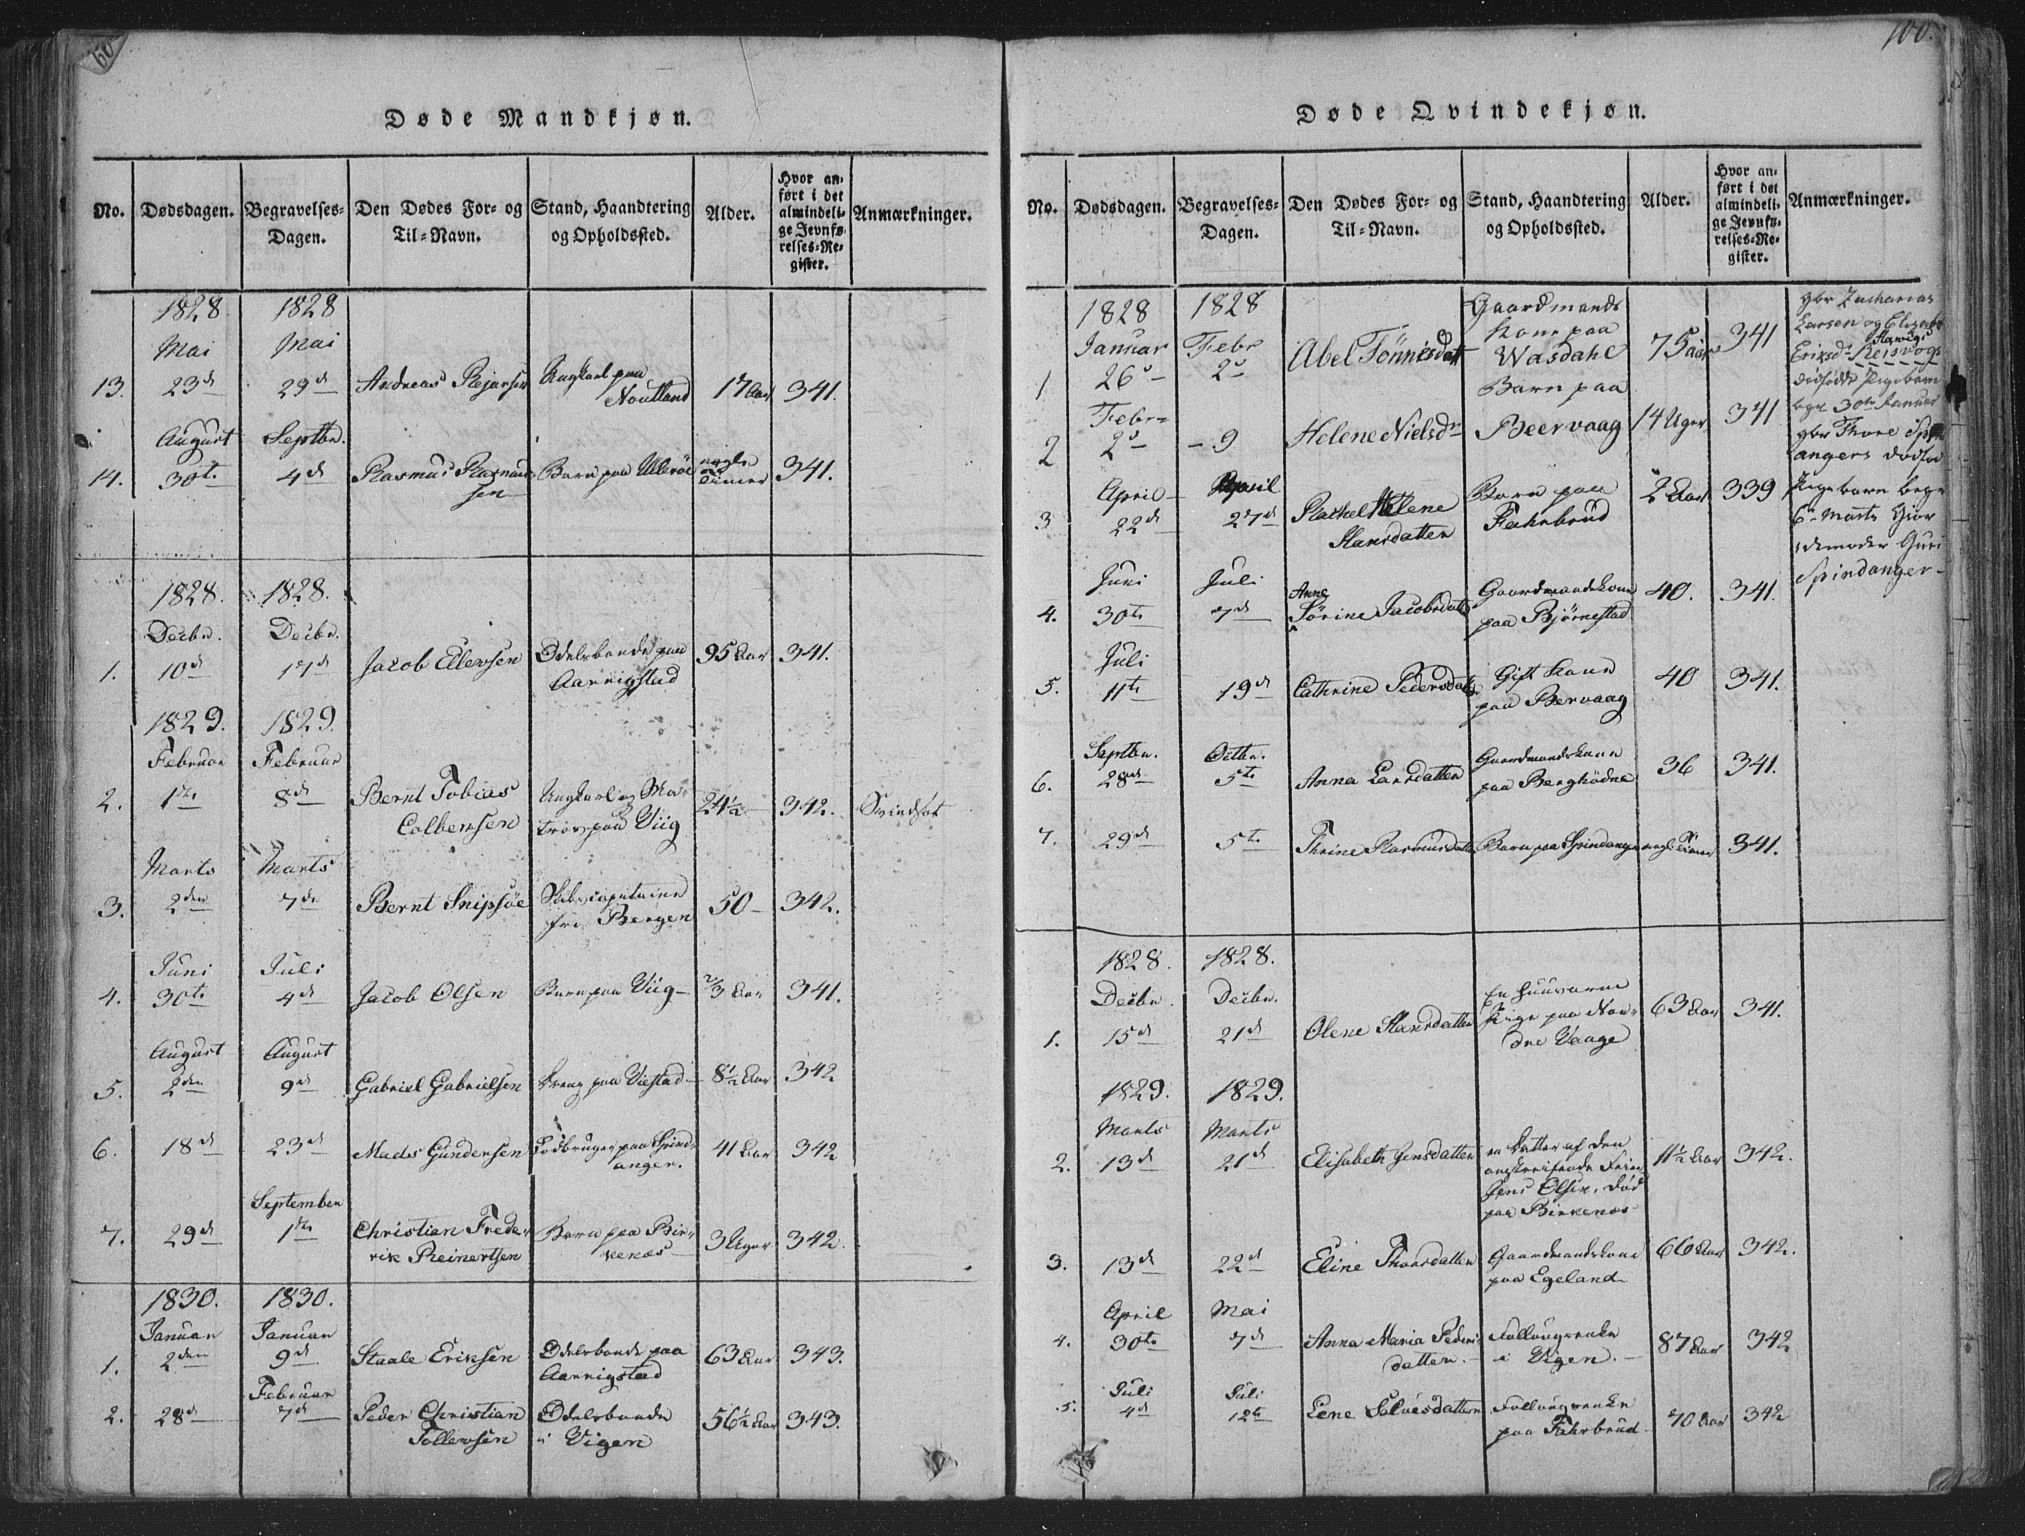 100.
Døde Mandkjøn.
No. Dødsdagen. Begravelses-Dagen. Den Dødes For- og Til-Navn. Stand, Haandtering og Opholdssted. Alder. Hvor anført i det almindelige Jevnførelses-Register. Anmærkninger.
1828 1828
Mai Mai
13. 23d 29d Andreas Rejersen Ungkarl paa 17 Aar 341.
August Septbr.
14. 30te 4d Rasmus Rasmus- Barn paa Ullerøe nogle Timer 341.
sen
1828. 1828.
Decbr. Decbr.
1. 10d 17d Jacob Ellevsen Odelsbonde paa 95 Aar 341.
Aarrigstad
1829. 1829.
Februar Februar
2. 1te 8d Bernt Tobias Ungkarl og Ma- 24½ 342. Svindsot
Colbensen tros paa Viig
Marts Marts
3. 2den 7de Bernt Snipsøe Skibscapitaine 50 342.
fra Bergen
Juni Juli
4. 30te 4d Jacob Olsen Barn paa Viig 2/3 Aar 341.
August August
5. 2den 9d Gabriel Gabrielsen Dreng paa Viestad 8½ Aar 342
6. 18d 23d Mads Gundersen Lodbruger paa Spind- 41 Aar 342
anger.
September
7. 29d 1te Christian Frede- Barn paa Bir- 3 Uger 342.
rik Reinertsen kenæs
1830. 1830.
Januar Januar
1. 2den 9d Staale Eriksen Odelsbonde paa 63 Aar 343.
Aarrigstad
Februar
2. 28d 7d Peder Christian Odelsbonde 56½ Aar 343.
Tollevsen i Vigen
Døde Qvindekjøn.
No. Dødsdagen. Begravelses-Dagen. Den Dødes For- og Til-Navn. Stand, Haandtering og Opholdssted. Alder. Hvor anført i det almindelige Jevnførelses-Register. Anmærkninger.
1828 1828 Gaardmands
Januar Febr Kone paa
1 26 2 Abel Tönnesdatt Wasdahl 75 aar 341
Febr Barn paa
2 2 9 Helene Nielsdr Beervaag 14 Uger 341
April April
3 22d 27d Rachel Helene Barn paa 2 Aar 339
Hansdatten Fahrbrud
Juni Juli
4. 30te 7d Anne Sørine Jacobsdatt Gaardmandskone 40. 341.
paa Bjørnestad
Juli
5. 11te 19d Cathrine Pedersdatt Gift Kone 40 341.
paa Bervaag
Septbr. Octbr.
6. 28de 5te Anna Larsdatten Gaardmandskone 36 341.
paa
7. 29d 5te Thrine Rasmusdatt Barn paa Spindanger nogl. Timer 341.
1828. 1828.
Decbr. Decbr.
1. 15d 21d Olene Hansdatten Pige paa Nor- 63 Aar 341.
dre Vaage
1829. 1829.
Marts Marts
2. 13d 21d Elisabeth Jensdatten en Datter af den 11½ Aar 342.
Jens Olsen, død
paa Birkenæs
3. 13d 22d Eline Thorsdatten Gaardmandskone 66 Aar 342.
paa Egeland
April Mai
4. 30te 7d Anna Maria Peders- Follougsenke 87 Aar 342
datten. i Vigen.
Juli Juli
5. 4d 12te Lene Salvesdatten Follougsenke 70 Aar 342
paa Fahrbrud
gbr Zacharias
Larsen og
Eriksd.
dødfødte Pigebarn
30te Januar
gbr Thore Spind-
angers dødfød
Pigebarn
6 Marts Gjor
demoder Guri
Spindanger